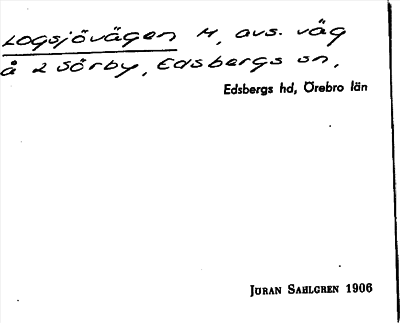 Logsjövägen M, avs. väg
å 2 Sörby, Edsbergs sn,
Edsbergs hd, Örebro län
Jöran Sahlgren 1906